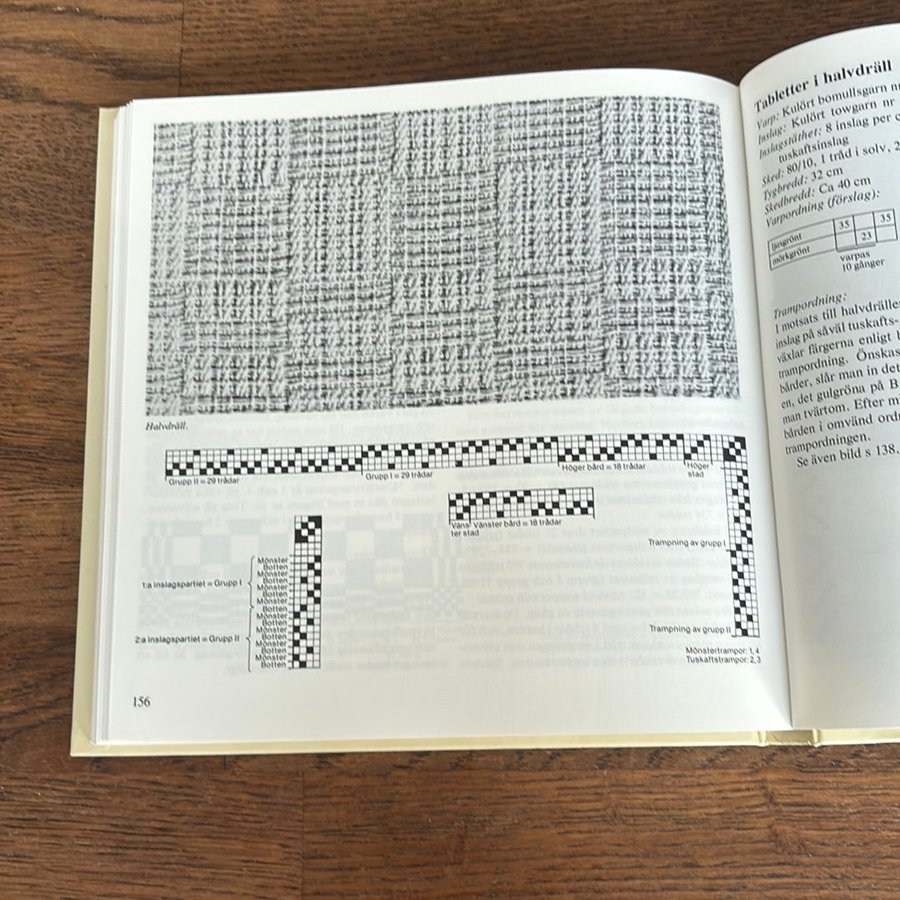 Halvdräll.
Grupp II = 29 trådar
Grupp I = 29 trådar
Höger bård = 18 trådar
Höger
stad
Väns-
ter stad
Vänster bård = 18 trådar
Trampning av grupp I
Mönster
Botten
Mönster
Botten
Mönster
Botten
Mönster
Botten
Mönster
Botten
Mönster
Botten
Mönster
Botten
Mönster
Botten
1:a inslagspartiet = Grupp I
2:a inslagspartiet = Grupp II
Trampning av grupp II
Mönstertrampor: 1,4
Tuskaftstrampor: 2,3
156
Tabletter i halvdräll
Varp: Kulört bomullsgarn
Inslag: Kulört towgarn nr
Inslagstäthet: 8 inslag per
tuskaftsinslag
Sked: 80/10, 1 tråd i solv, 2
Tygbredd: 32 cm
Skedbredd: Ca 40 cm
Varpordning (förslag):
ljusgrönt 35 35
mörkgrönt 23
varpas
10 gånger
Trampordning:
I motsats till halvdrällen
inslag på såväl tuskafts-
växlar färgerna enligt
trampordning. Önskas
bårder, slår man in det
en, det gulgröna på B
man tvärtom. Efter
bården i omvänd
trampordningen.
Se även bild s 138.